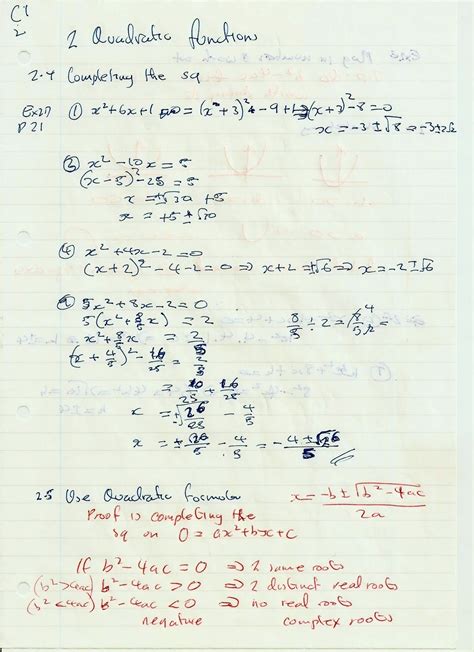 C1
2
2 Quadratic functions
2.4 Completing the sq
Ex2D
P21
① x² + 6x + 1 = 0 = (x + 3)² - 9 + 1 = (x + 3)² - 8 = 0
x = -3 ± √8 = -3 ± 2√2
x² - 10x = 5
(x - 5)² - 25 = 5
x = ±√30 + 5
x = +5 ± √30
④ x² + 4x - 2 = 0
(x + 2)² - 4 - 2 = 0 ⇒ x + 2 = ±√6 ⇒ x = -2 ± √6
5x² + 8x - 2 = 0
5(x² + 8/5 x) = 2
8/5 ÷ 2 =
x² + 8/5 x = 2/5
(x + 4/5)² - 16/25 = 2/5
= 10/25 + 16/25
x = ±√26/25 - 4/5
x = ± √26/5 - 4/5 = -4 ± √26/5
2.5 Use Quadratic formula
x = -b ± √b² - 4ac / 2a
Proof is completing the
sq on 0 = ax² + bx + c
If b² - 4ac = 0 ⇒ 2 same roots
(b² > 4ac) b² - 4ac > 0 ⇒ 2 distinct real roots
(b² < 4ac) b² - 4ac < 0 ⇒ no real roots
negative complex roots